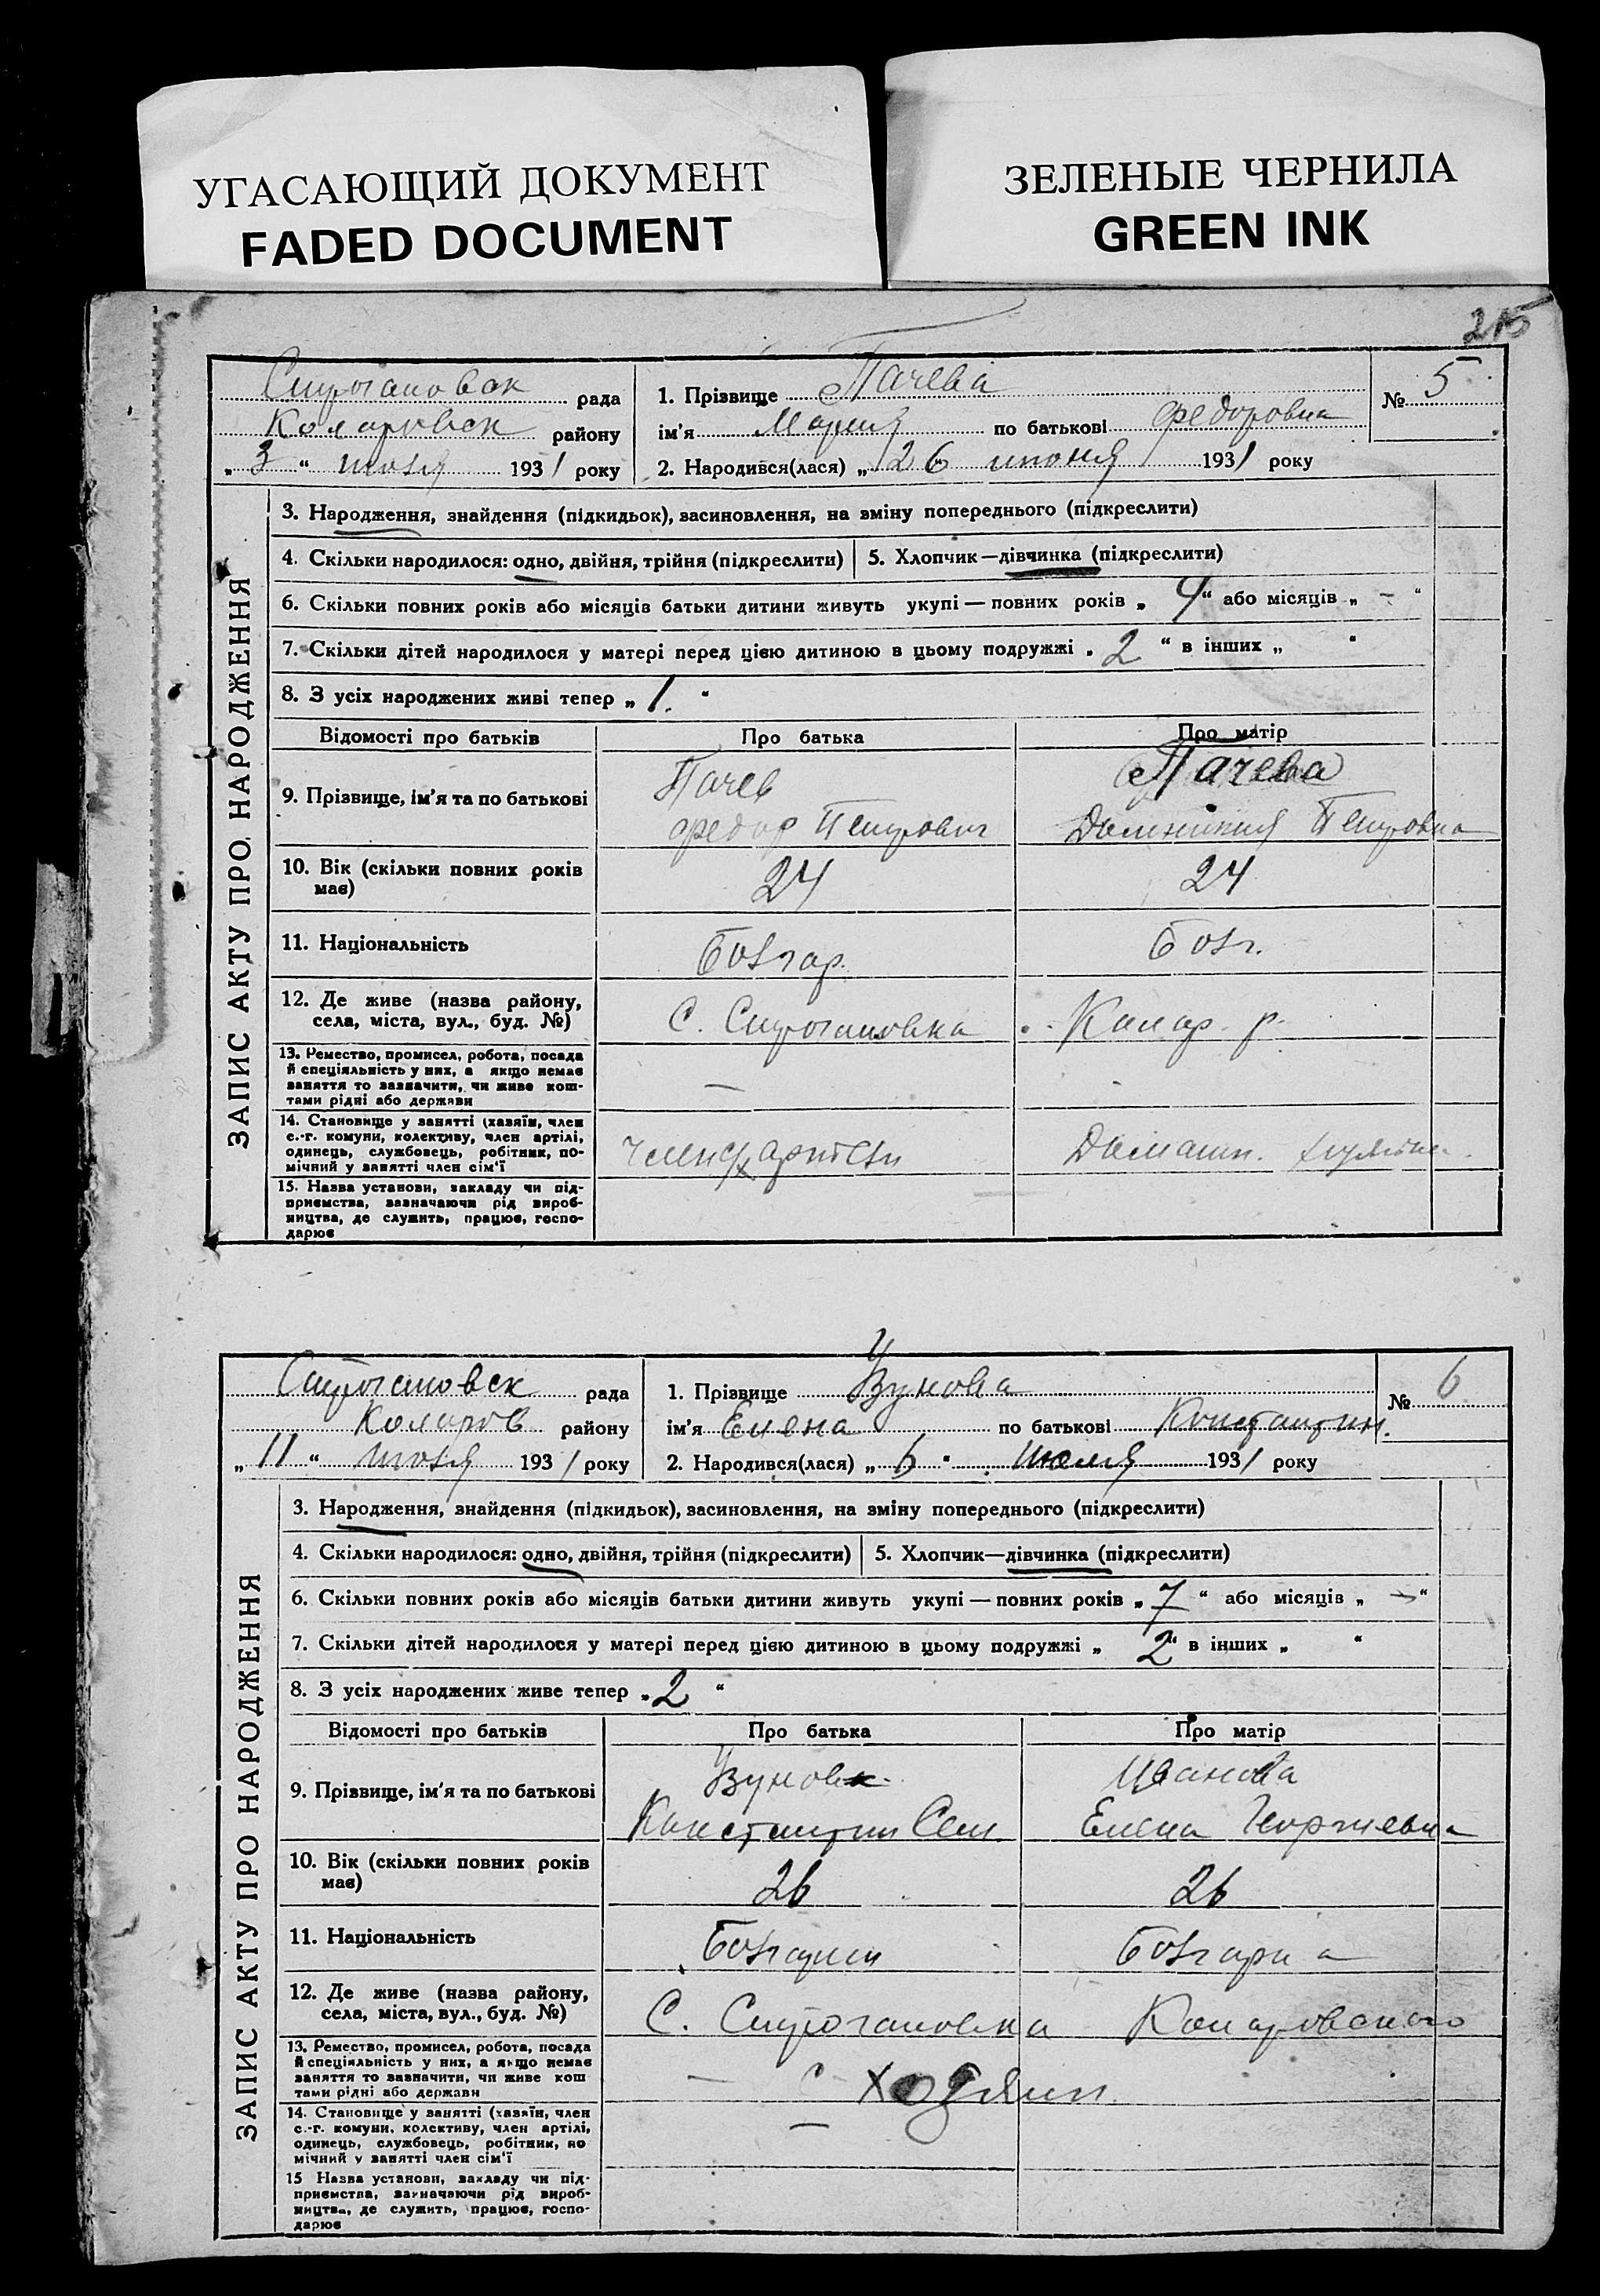 УГАСАЮЩИЙ ДОКУМЕНТ
FADED DOCUMENT
ЗЕЛЕНЫЕ ЧЕРНИЛА
GREEN INK
215
Строгановск рада
Коларовск району
„ 3 “ июля 1931 року
1. Прізвище Пачева
ім'я Мария по батькові Федоровна
2. Народився(лася) „ 26 июня 1931 року
№ 5
ЗАПИС АКТУ ПРО НАРОДЖЕННЯ
3. Народження, знайдення (підкидьок), засиновлення, на зміну попереднього (підкреслити)
4. Скільки народилося: одно, двійня, трійня (підкреслити)
5. Хлопчик—дівчинка (підкреслити)
6. Скільки повних років або місяців батьки дитини живуть укупі — повних років „ 4 “ або місяців „ — “
7. Скільки дітей народилося у матері перед цією дитиною в цьому подружжі „ 2 “ в інших „ “
8. З усіх народжених живі тепер „ 1. “
Відомості про батьків Про батька Про матір
9. Прізвище, ім'я та по батькові
Пачев
Федор Петрович
Пачева
Домникия Петровна
10. Вік (скільки повних років
має)
24
24
11. Національність
Болгар.
Болг.
12. Де живе (назва району,
села, міста, вул., буд. №)
С. Строгановка Колар. р.
13. Ремество, промисел, робота, посада
й спеціяльність у них, а якщо немає
заняття то зазначити, чи живе кош-
тами рідні або держави
—
14. Становище у занятті (хазяїн, член
с.-г. комуни, колективу, член артілі,
одинець, службовець, робітник, по-
мічний у занятті член сім'ї
член с/х артели
Домашн.
15. Назва установи, закладу чи під-
приємства, зазначаючи рід вироб-
ництва, де служить, працює, госпо-
дарює
Строгановск рада
Коларов району
„ 11 “ июля 1931 року
1. Прізвище Узунова
ім'я Елена по батькові Константин.
2. Народився(лася) „ 6 “ июля 1931 року
№ 6
ЗАПИС АКТУ ПРО НАРОДЖЕННЯ
3. Народження, знайдення (підкидьок), засиновлення, на зміну попереднього (підкреслити)
4. Скільки народилося: одно, двійня, трійня (підкреслити)
5. Хлопчик—дівчинка (підкреслити)
6. Скільки повних років або місяців батьки дитини живуть укупі — повних років „ 7 “ або місяців „ — “
7. Скільки дітей народилося у матері перед цією дитиною в цьому подружжі „ 2 “ в інших „ “
8. З усіх народжених живе тепер „ 2 “
Відомості про батьків Про батька Про матір
9. Прізвище, ім'я та по батькові
Узунов
Константин Сем.
Иванова
Елена Георгиевна
10. Вік (скільки повних років
має)
26
26
11. Національність
Болгарин
Болгарка
12. Де живе (назва району,
села, міста, вул., буд. №)
С. Строгановка Коларовского
13. Ремество, промисел, робота, посада
й спеціяльність у них, а якщо немає
заняття то зазначити, чи живе кош
тами рідні або держави
— Хозяин.
14. Становище у занятті (хазяїн, член
с.-г. комуни, колективу, член артілі,
одинець, службовець, робітник, по
мічний у занятті член сім'ї
—
15 Назва установи, закладу чи під-
приємства, зазначаючи рід вироб-
ництва, де служить, працює, госпо-
дарює